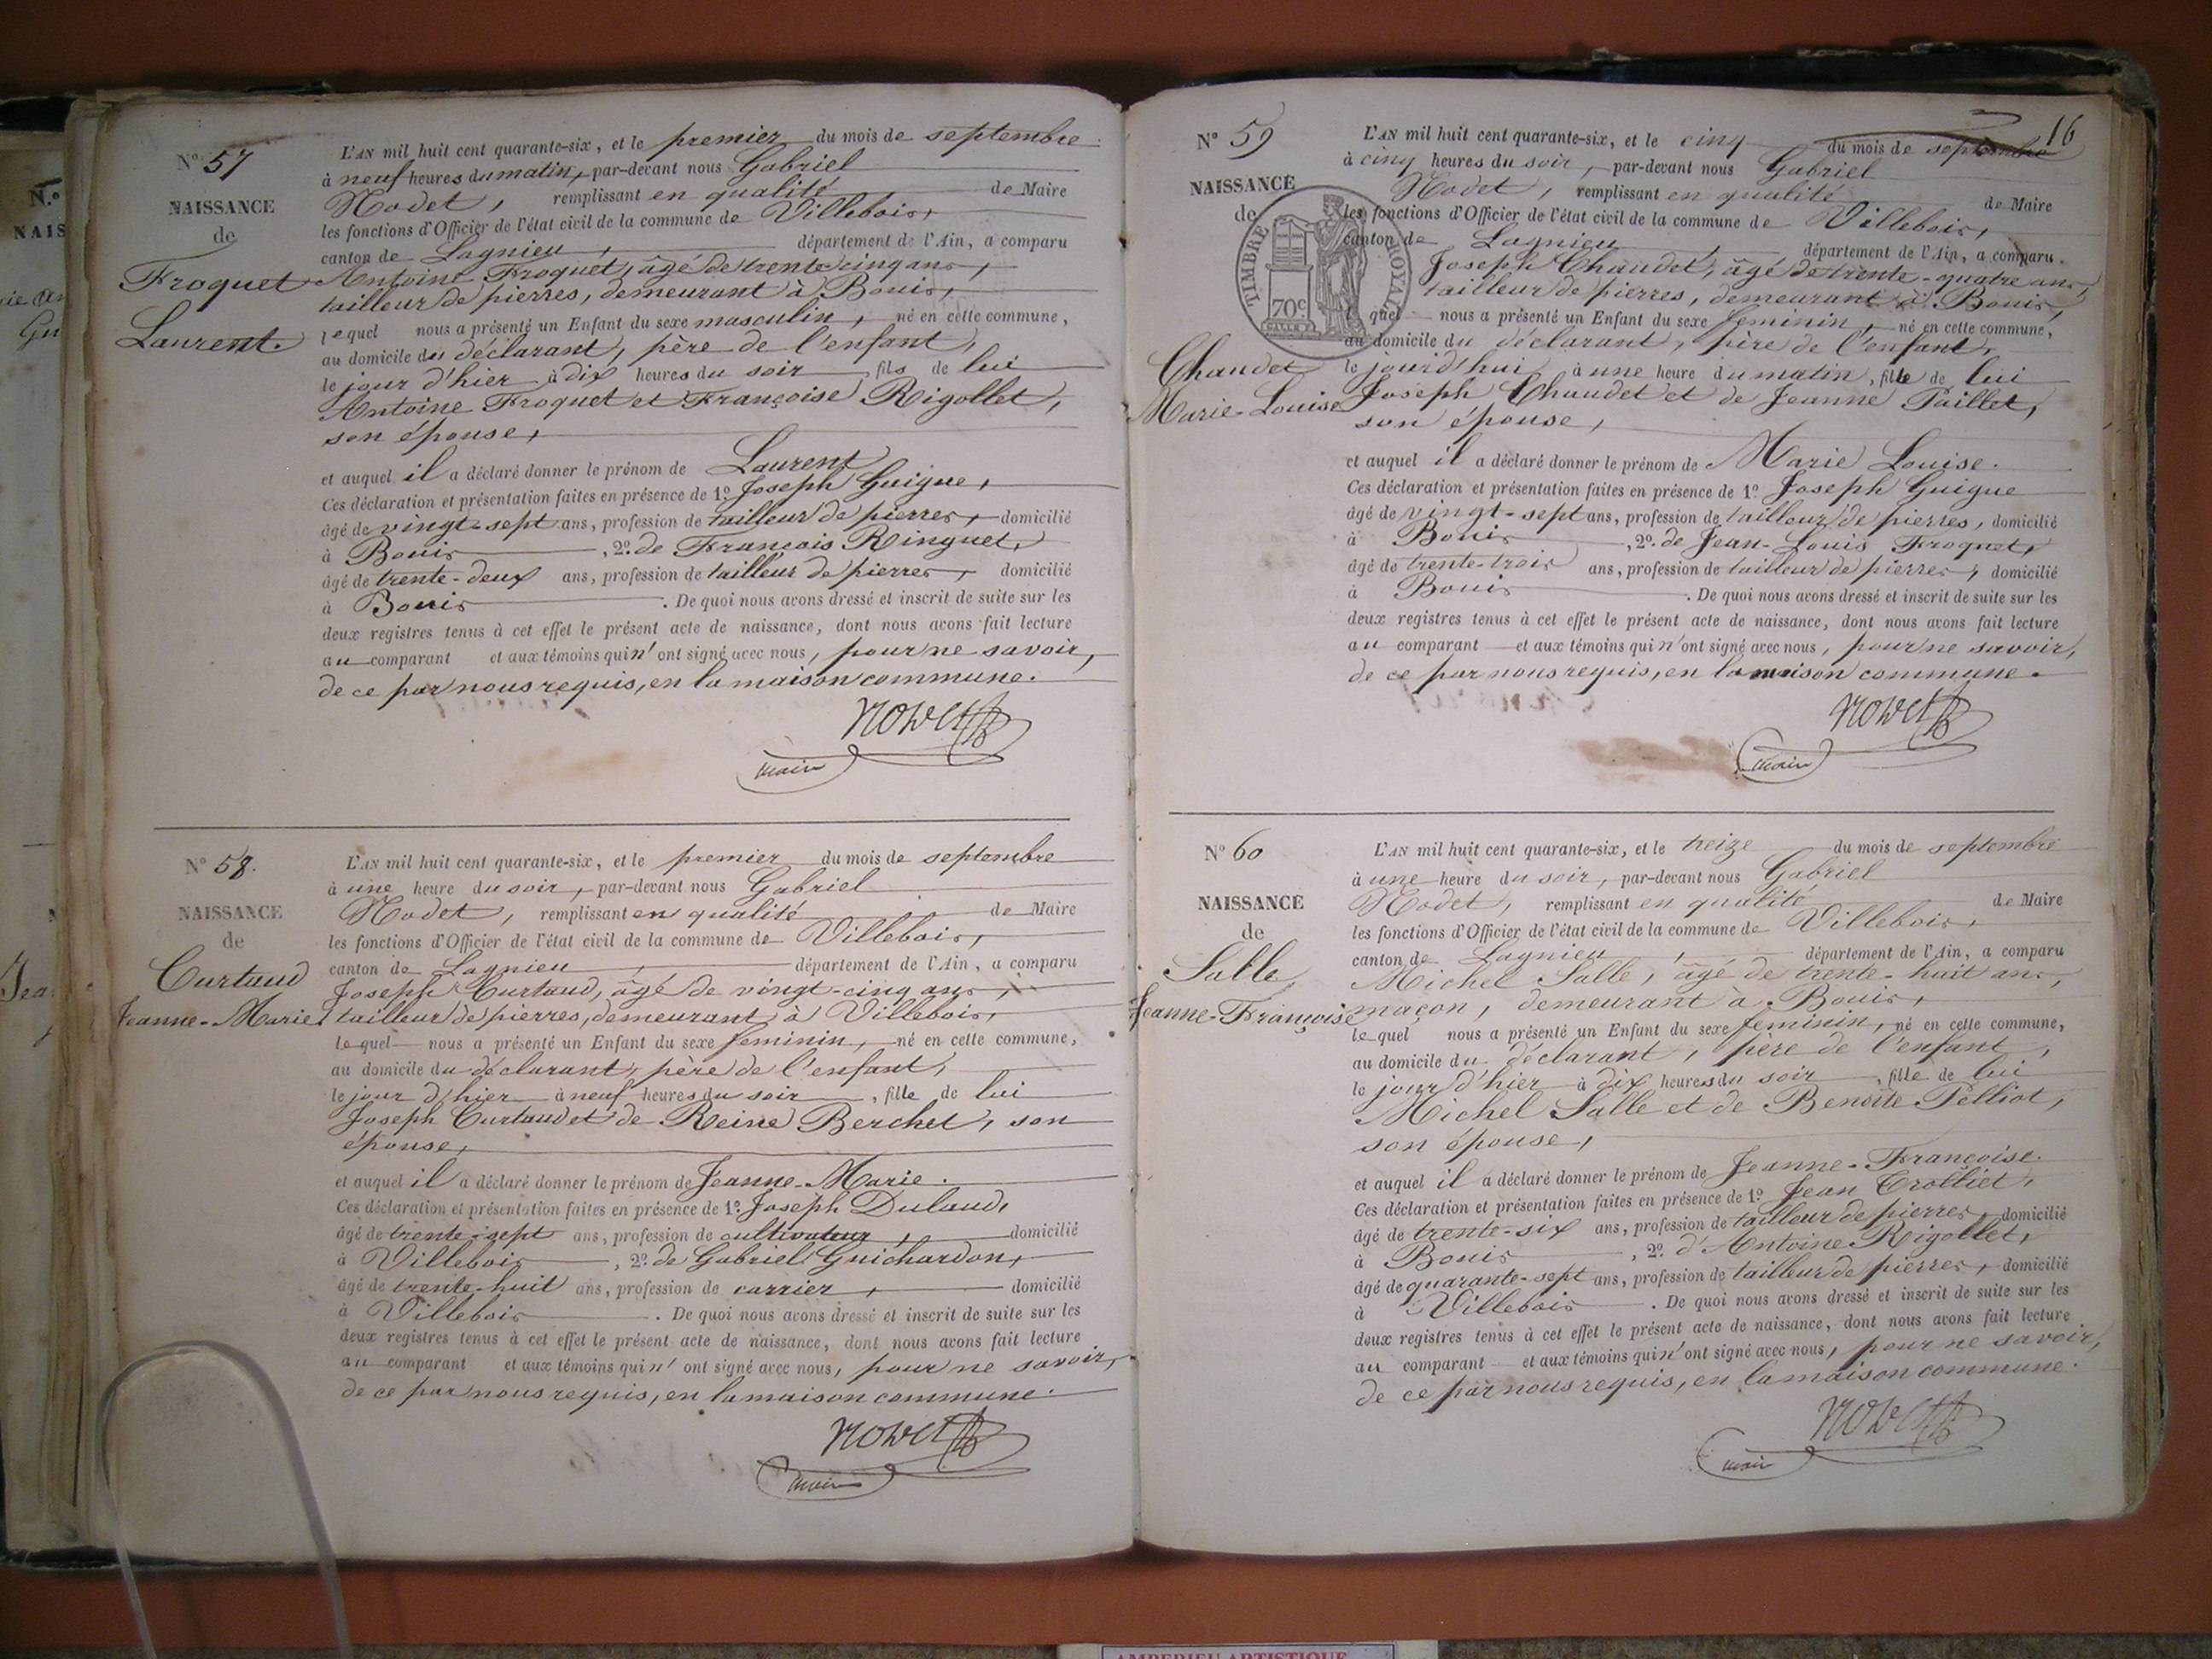 N° 57
NAISSANCE
de
Froquet
Laurent.
L'AN mil huit cent quarante-six, et le premier du mois de septembre
à neuf heures du matin, par-devant nous Gabriel
Nodet, remplissant en qualité de Maire
les fonctions d'Officier de l'état civil de la commune de Villebois,
canton de Lagnieu, département de l'Ain, a comparu
Antoine Froquet, âgé de trente-cinq ans,
tailleur de pierres, demeurant à Bouis,
lequel nous a présenté un Enfant du sexe masculin, né en cette commune,
au domicile du déclarant, père de l'enfant,
le jour d'hier à dix heures du soir fils de lui
Antoine Froquet et Françoise Rigollet,
son épouse,
et auquel il a déclaré donner le prénom de Laurent
Ces déclaration et présentation faites en présence de 1° Joseph Guigue,
âgé de vingt-sept ans, profession de tailleur de pierres, domicilié
à Bouis, 2° de François Ringuet,
âgé de trente-deux ans, profession de tailleur de pierres, domicilié
à Bouis. De quoi nous avons dressé et inscrit de suite sur les
deux registres tenus à cet effet le présent acte de naissance, dont nous avons fait lecture
au comparant et aux témoins qui n'ont signé avec nous, pour ne savoir,
de ce par nous requis, en la maison commune.
Nodet
maire
N° 58.
NAISSANCE
de
Curtaud
Jeanne-Marie
L'AN mil huit cent quarante-six, et le premier du mois de septembre
à une heure du soir, par-devant nous Gabriel
Nodet, remplissant en qualité de Maire
les fonctions d'Officier de l'état civil de la commune de Villebois,
canton de Lagnieu, département de l'Ain, a comparu
Joseph Curtaud, âgé de vingt-cinq ans,
tailleur de pierres, demeurant à Villebois,
lequel nous a présenté un Enfant du sexe feminin, né en cette commune,
au domicile du déclarant, père de l'enfant,
le jour d'hier à neuf heures du soir, fille de lui
Joseph Curtaud et de Reine Berchet, son
épouse,
et auquel il a déclaré donner le prénom de Jeanne-Marie.
Ces déclaration et présentation faites en présence de 1° Joseph Dulaud,
âgé de trente-sept ans, profession de cultivateur, domicilié
à Villebois, 2° de Gabriel Guichardon,
âgé de trente-huit ans, profession de carrier, domicilié
à Villebois. De quoi nous avons dressé et inscrit de suite sur les
deux registres tenus à cet effet le présent acte de naissance, dont nous avons fait lecture
au comparant et aux témoins qui n'ont signé avec nous, pour ne savoir,
de ce par nous requis, en la maison commune.
Nodet
maire
16
N° 59
NAISSANCE
de
TIMBRE ROYAL
70c
Chaudet
Marie-Louise
L'AN mil huit cent quarante-six, et le cinq du mois de septembre
à cinq heures du soir, par-devant nous Gabriel
Nodet, remplissant en qualité de Maire
les fonctions d'Officier de l'état civil de la commune de Villebois,
canton de Lagnieu, département de l'Ain, a comparu
Joseph Chaudet, âgé de trente-quatre ans,
tailleur de pierres, demeurant à Bouis,
lequel nous a présenté un Enfant du sexe feminin, né en cette commune,
au domicile du déclarant, père de l'enfant,
le jourd'hui à une heure du matin, fille de lui
Joseph Chaudet et de Jeanne Paillet,
son épouse,
et auquel il a déclaré donner le prénom de Marie Louise.
Ces déclaration et présentation faites en présence de 1° Joseph Guigue
âgé de vingt-sept ans, profession de tailleur de pierres, domicilié
à Bouis, 2° de Jean-Louis Froquet,
âgé de trente-trois ans, profession de tailleur de pierres, domicilié
à Bouis. De quoi nous avons dressé et inscrit de suite sur les
deux registres tenus à cet effet le présent acte de naissance, dont nous avons fait lecture
au comparant et aux témoins qui n'ont signé avec nous, pour ne savoir,
de ce par nous requis, en la maison commune.
Nodet
maire
N° 60
NAISSANCE
de
Salle
Jeanne-Françoise
L'AN mil huit cent quarante-six, et le treize du mois de septembre
à une heure du soir, par-devant nous Gabriel
Nodet, remplissant en qualité de Maire
les fonctions d'Officier de l'état civil de la commune de Villebois,
canton de Lagnieu, département de l'Ain, a comparu
Michel Salle, âgé de trente-huit ans,
maçon, demeurant à Bouis,
lequel nous a présenté un Enfant du sexe feminin, né en cette commune,
au domicile du déclarant, père de l'enfant,
le jour d'hier à dix heures du soir, fille de lui
Michel Salle et de Benoîte Pelliot,
son épouse,
et auquel il a déclaré donner le prénom de Jeanne-Françoise.
Ces déclaration et présentation faites en présence de 1° Jean Trolliet,
âgé de trente-six ans, profession de tailleur de pierres, domicilié
à Bouis, 2° d'Antoine Rigollet,
âgé de quarante-sept ans, profession de tailleur de pierres, domicilié
à Villebois. De quoi nous avons dressé et inscrit de suite sur les
deux registres tenus à cet effet le présent acte de naissance, dont nous avons fait lecture
au comparant et aux témoins qui n'ont signé avec nous, pour ne savoir,
de ce par nous requis, en la maison commune.
Nodet
maire